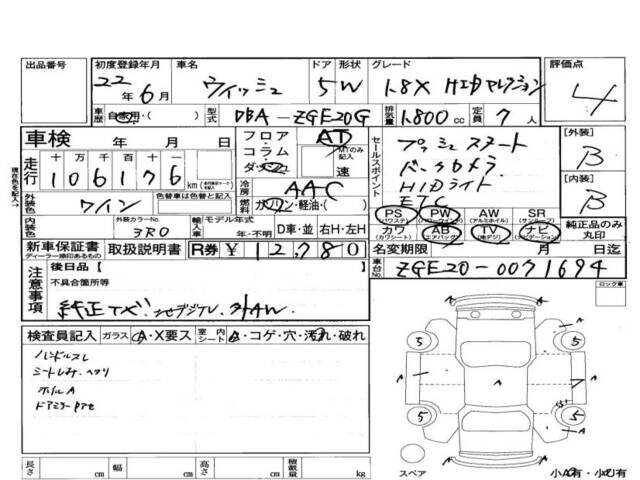 出品番号 初度登録年月 車名 ドア 形状 グレード 評価点
22年6月 ウィッシュ 5W 1.8X HIDセレクション 4
車歴 自家用・( ) 型式 DBA-ZGE20G 排気量 1800cc 定員 7人
車検 年 月 日 フロア コラム ダッシュ AT MTのみ記入 速
セールスポイント プッシュスタート
バックカメラ
HIDライト
ETC
[外装] B
[内装] B
走行 十万千百十一
106176km
現在色を記入→
外装色 ワイン 色替車は色替と記入
冷房 AAC
燃料 ガソリン・軽油・( )
内装色 外装カラーNo. 3R0 輸入車 モデル年式 年・不明 D車・並 右H・左H
PS (パワステ) PW AW (アルミホイル) SR (サンルーフ)
カワ (カワシート) AB (エアバッグ) TV (地デジ) ナビ (ナビゲーション) 純正品のみ丸印
新車保証書 ディーラー捺印あるもの 取扱説明書 R券 ¥12,780 名変期限 月 日迄
注意事項 後日品[ ]
不具合箇所等
純正TV.
車台No. ZGE20-0071694
ロック車
検査員記入 ガラス A・X要ス 室内シート コゲ・穴・汚れ・破れ
ハンドルスレ
シートしみ.ヘタリ
ホイルA
5 5 5 5
A A A A
スペア
長さ cm 幅 cm 高さ cm 積載量 kg
小A有・小U有